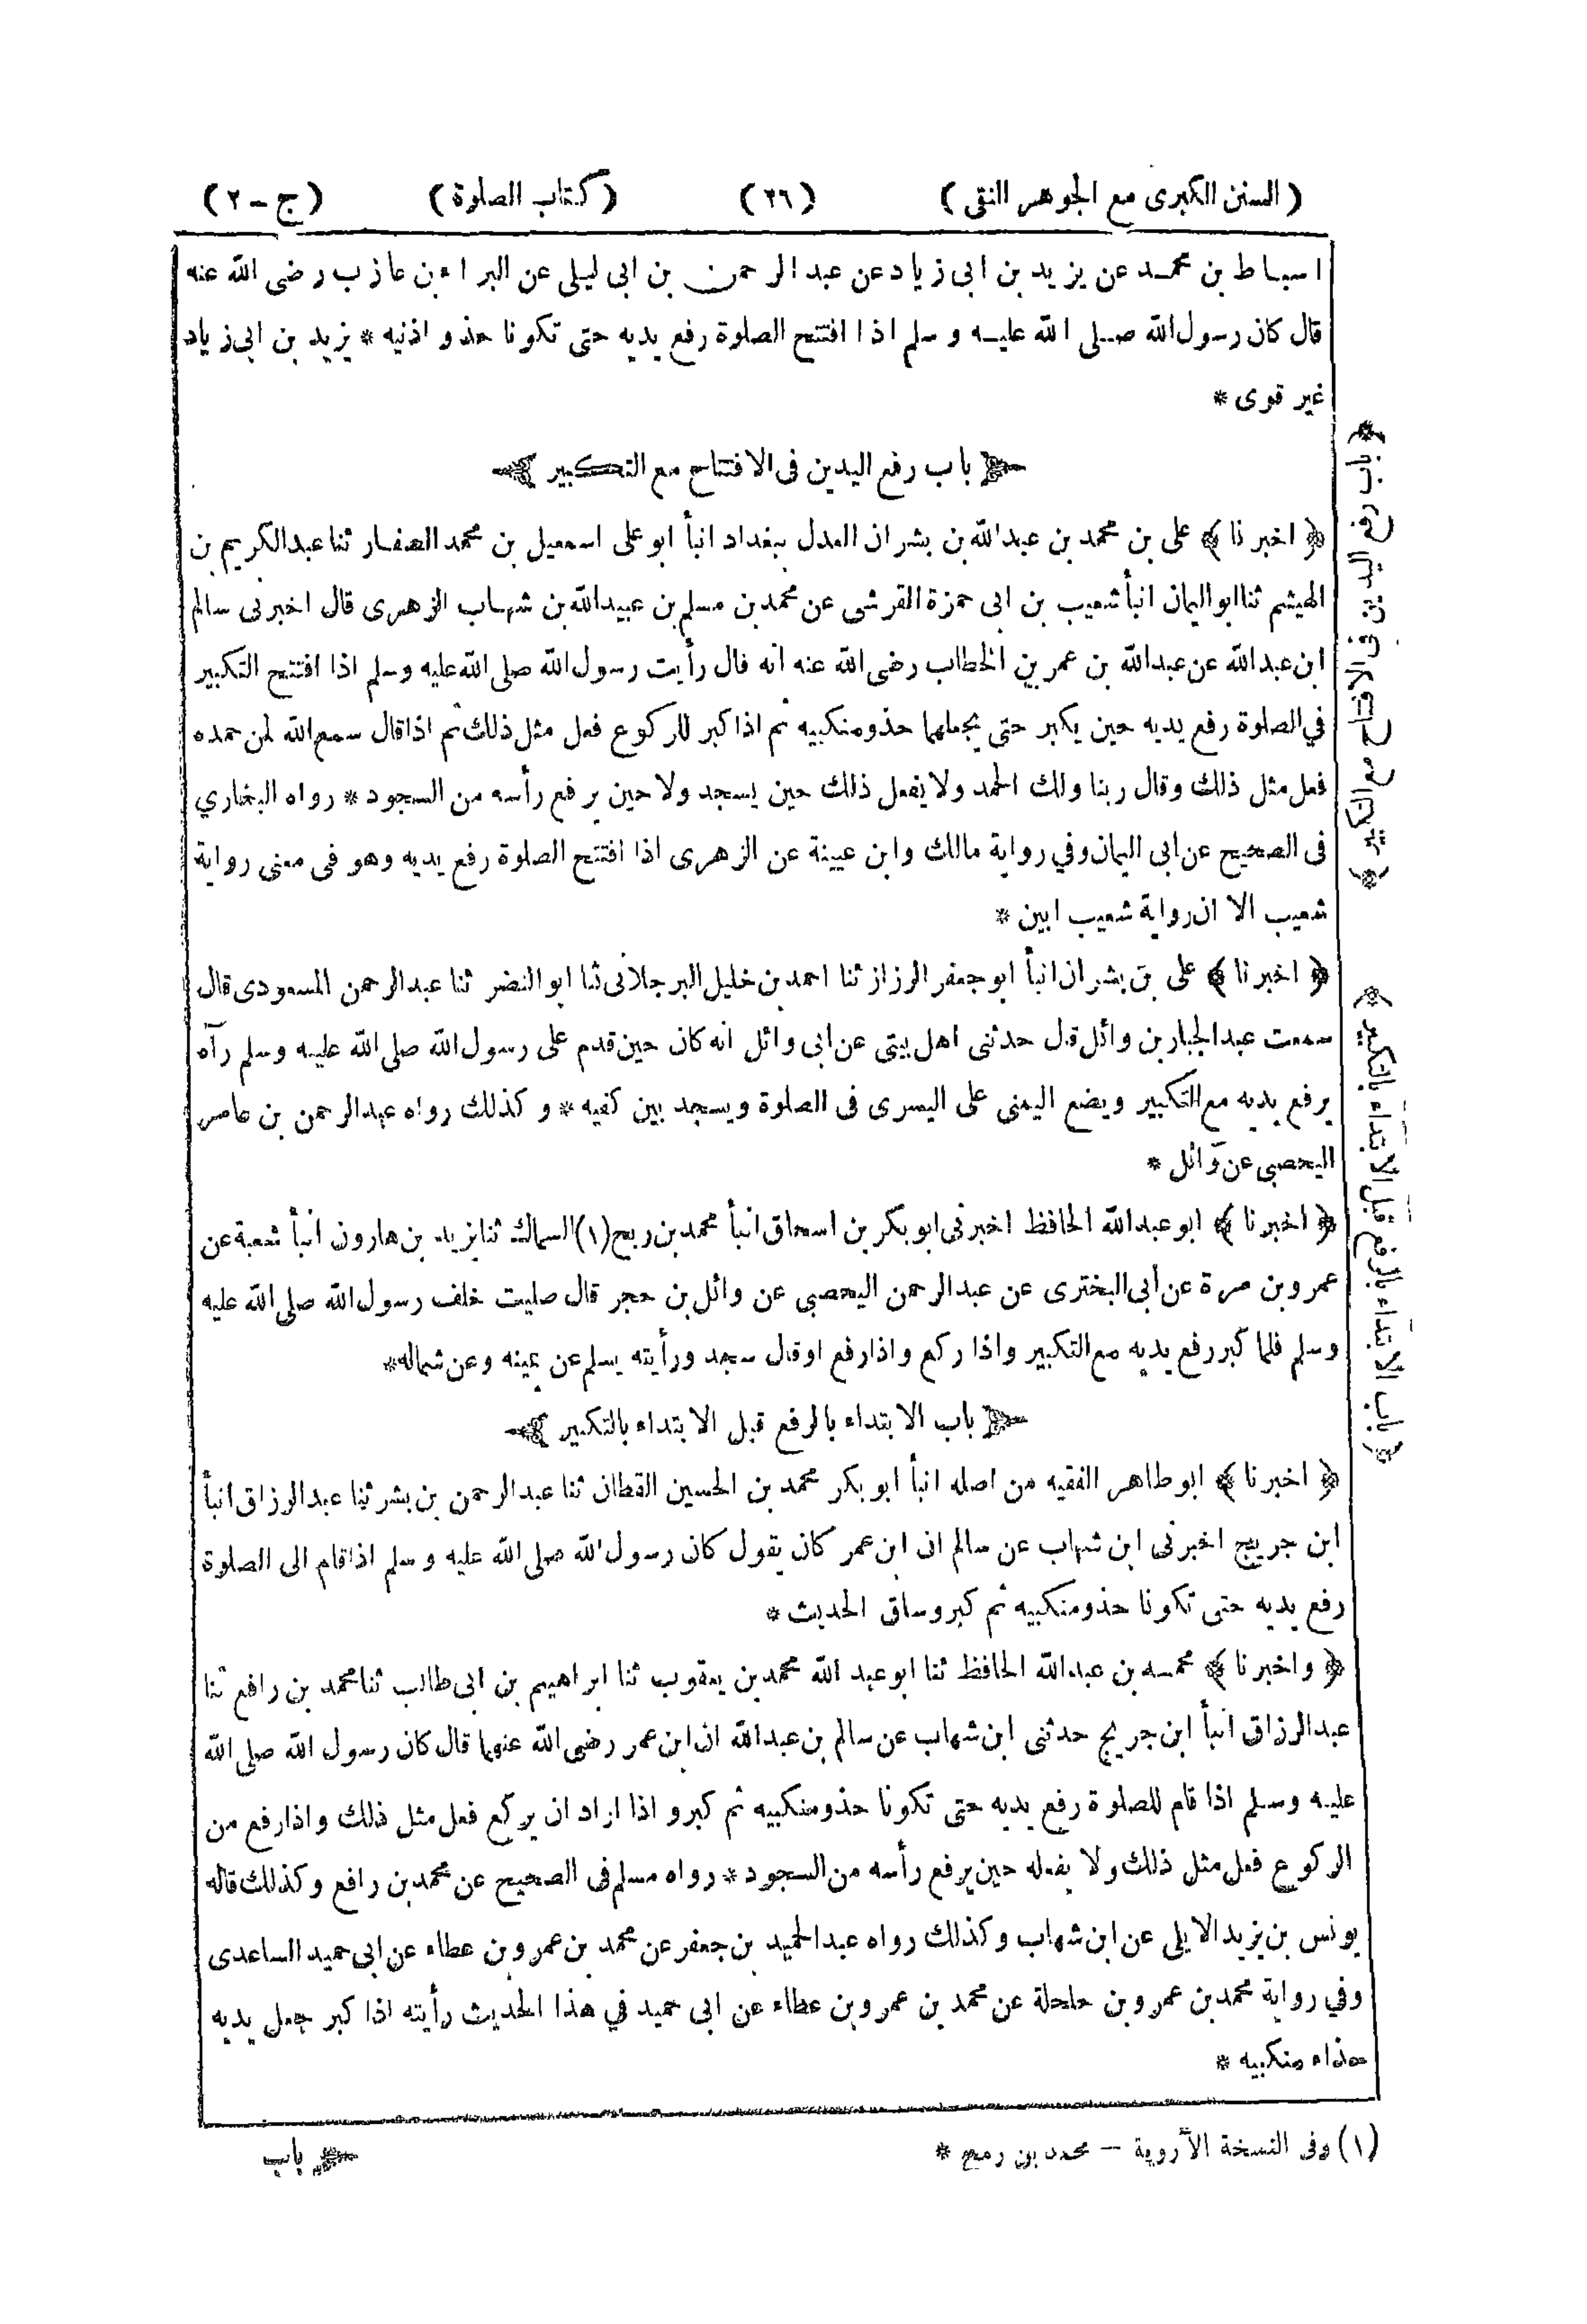 ( السنن الكبرى مع الجوهر النقى ) ( ٢٦ ) ( كتاب الصلوة ) ( ج - ٢ )
اسباط بن محمد عن يزيد بن ابى زياد عن عبد الرحمن بن ابى ليلى عن البراء بن عازب رضى الله عنه
قال كان رسول الله صلى الله عليه و سلم اذا افتتح الصلوة رفع يديه حتى تكونا حذو اذنيه * يزيد بن ابى زياد
غير قوى *
باب رفع اليدين فى الافتتاح مع التكبير
﴿ اخبرنا ﴾ على بن محمد بن عبد الله بن بشران العدل ببغداد انبأ ابو على اسمعيل بن محمد الصفار ثنا عبد الكريم بن
الهيثم ثنا ابو اليمان انبأ شعيب بن ابى حمزة القرشى عن محمد بن مسلم بن عبيد الله بن شهاب الزهرى قال اخبرنى سالم
ابن عبد الله عن عبد الله بن عمر بن الخطاب رضى الله عنه انه قال رأيت رسول الله صلى الله عليه وسلم اذا افتتح التكبير
في الصلوة رفع يديه حين يكبر حتى يجعلهما حذو منكبيه ثم اذا كبر للركوع فعل مثل ذلك ثم اذا قال سمع الله لمن حمده
فعل مثل ذلك وقال ربنا ولك الحمد ولا يفعل ذلك حين يسجد ولا حين يرفع رأسه من السجود * رواه البخاري
فى الصحيح عن ابى اليمان وفي رواية مالك وابن عيينة عن الزهرى اذا افتتح الصلوة رفع يديه وهو فى معنى رواية
شعيب الا ان رواية شعيب ابين *
﴿ اخبرنا ﴾ على بن بشران انبأ ابو جعفر الرزاز ثنا احمد بن خليل البرجلانى ثنا ابو النضر ثنا عبد الرحمن المسعودى قال
سمعت عبد الجبار بن وائل قال حدثنى اهل بيتى عن ابى وائل انه كان حين قدم على رسول الله صلى الله عليه وسلم رآه
يرفع يديه مع التكبير ويضع اليمنى على اليسرى فى الصلوة ويسجد بين كفيه * وكذلك رواه عبد الرحمن بن عامر
اليحصبى عن وائل *
﴿ اخبرنا ﴾ ابو عبد الله الحافظ اخبرنى ابو بكر بن اسحاق انبأ محمد بن ربح (١) السماك ثنا يزيد بن هارون انبأ شعبة عن
عمرو بن مرة عن أبى البخترى عن عبد الرحمن اليحصبى عن وائل بن حجر قال صليت خلف رسول الله صلى الله عليه
وسلم فلما كبر رفع يديه مع التكبير واذا ركع واذا رفع او قال سجد ورأيته يسلم عن يمينه وعن شماله *
باب الابتداء بالرفع قبل الابتداء بالتكبير
﴿ اخبرنا ﴾ ابو طاهر الفقيه من اصله انبأ ابو بكر محمد بن الحسين القطان ثنا عبد الرحمن بن بشر ثنا عبد الرزاق انبأ
ابن جريج اخبرنى ابن شهاب عن سالم ان ابن عمر كان يقول كان رسول الله صلى الله عليه وسلم اذا قام الى الصلوة
رفع يديه حتى تكونا حذو منكبيه ثم كبر وساق الحديث *
﴿ واخبرنا ﴾ محمد بن عبد الله الحافظ ثنا ابو عبد الله محمد بن يعقوب ثنا ابراهيم بن ابى طالب ثنا محمد بن رافع ثنا
عبد الرزاق انبأ ابن جريج حدثنى ابن شهاب عن سالم بن عبد الله ان ابن عمر رضى الله عنهما قال كان رسول الله صلى الله
عليه وسلم اذا قام للصلوة رفع يديه حتى تكونا حذو منكبيه ثم كبر و اذا اراد ان يركع فعل مثل ذلك واذا رفع من
الركوع فعل مثل ذلك ولا يفعله حين يرفع رأسه من السجود * رواه مسلم فى الصحيح عن محمد بن رافع وكذلك قاله
يونس بن يزيد الايلى عن ابن شهاب وكذلك رواه عبد الحميد بن جعفر عن محمد بن عمرو بن عطاء عن ابى حميد الساعدى
وفي رواية محمد بن عمرو بن حلحلة عن محمد بن عمرو بن عطاء عن ابى حميد في هذا الحديث رأيته اذا كبر جعل يديه
حذاء منكبيه *
(١) وفى النسخة الآروية – محمد بن رمح *
باب
﴿ باب رفع اليدين فى الافتتاح مع التكبير ﴾
﴿ باب الابتداء بالرفع قبل الابتداء بالتكبير ﴾